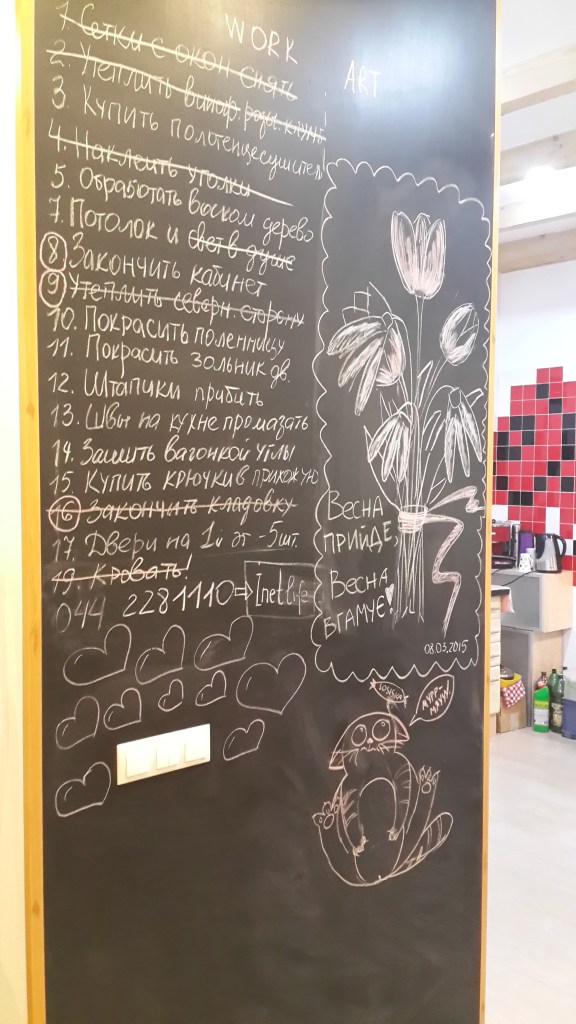 WORK
ART
1. Сетки с окон снять
2. Утеплить виногр. розы. клумб
3. Купить полотенцесушитель
4. Наклеить уголки
5. Обработать воском дерево
7. Потолок и свет в душе
8 Закончить кабинет
9 Утеплить северн. сторону
10. Покрасить поленницу
11. Покрасить зольник дв.
12. Штапики прибить
13. Швы на кухне промазать
14. Зашить вагонкой углы
15. Купить крючки в прихожую
16 Закончить кладовку
17. Двери на 1й эт - 5шт.
19 Кровать!
044 2281110⇒ Inetlife
Весна
прийде,
Весна
бгамує!
08.03.2015
SOSISKA
Мурр-
мяу!